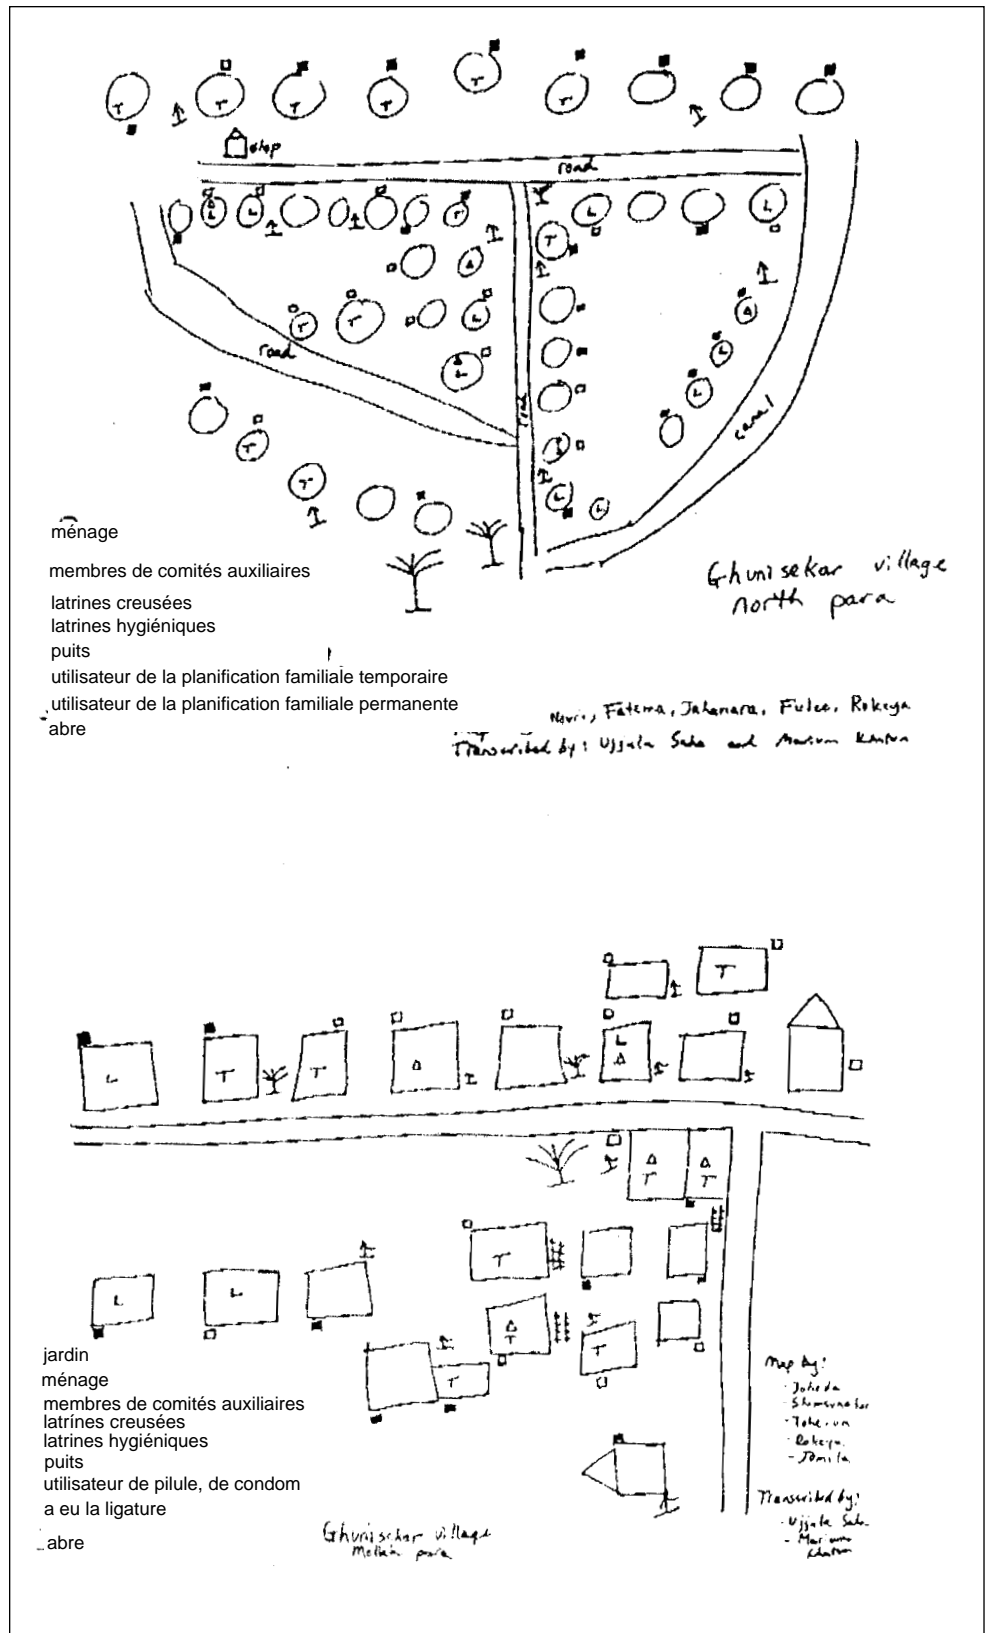 shop
road
road
road
canal
ménage
membres de comités auxiliaires
latrines creusées
latrines hygiéniques
puits
utilisateur de la planification familiale temporaire
utilisateur de la planification familiale permanente
abre
Ghunisekar village
north para
Fatema, Jahanara, Fulee, Rokeya
Transcribed by: Ujjala Saha and Marium Khatun
jardin
ménage
membres de comités auxiliaires
latrínes creusées
latrines hygiéniques
puits
utilisateur de pilule, de condom
a eu la ligature
abre
Ghunisekar village
Mollah para
Map by:
- Joheda
- Shamsunahar
- Rokeya
- Jomila
Transcribed by:
- Ujjala Saha
- Marium Khatun